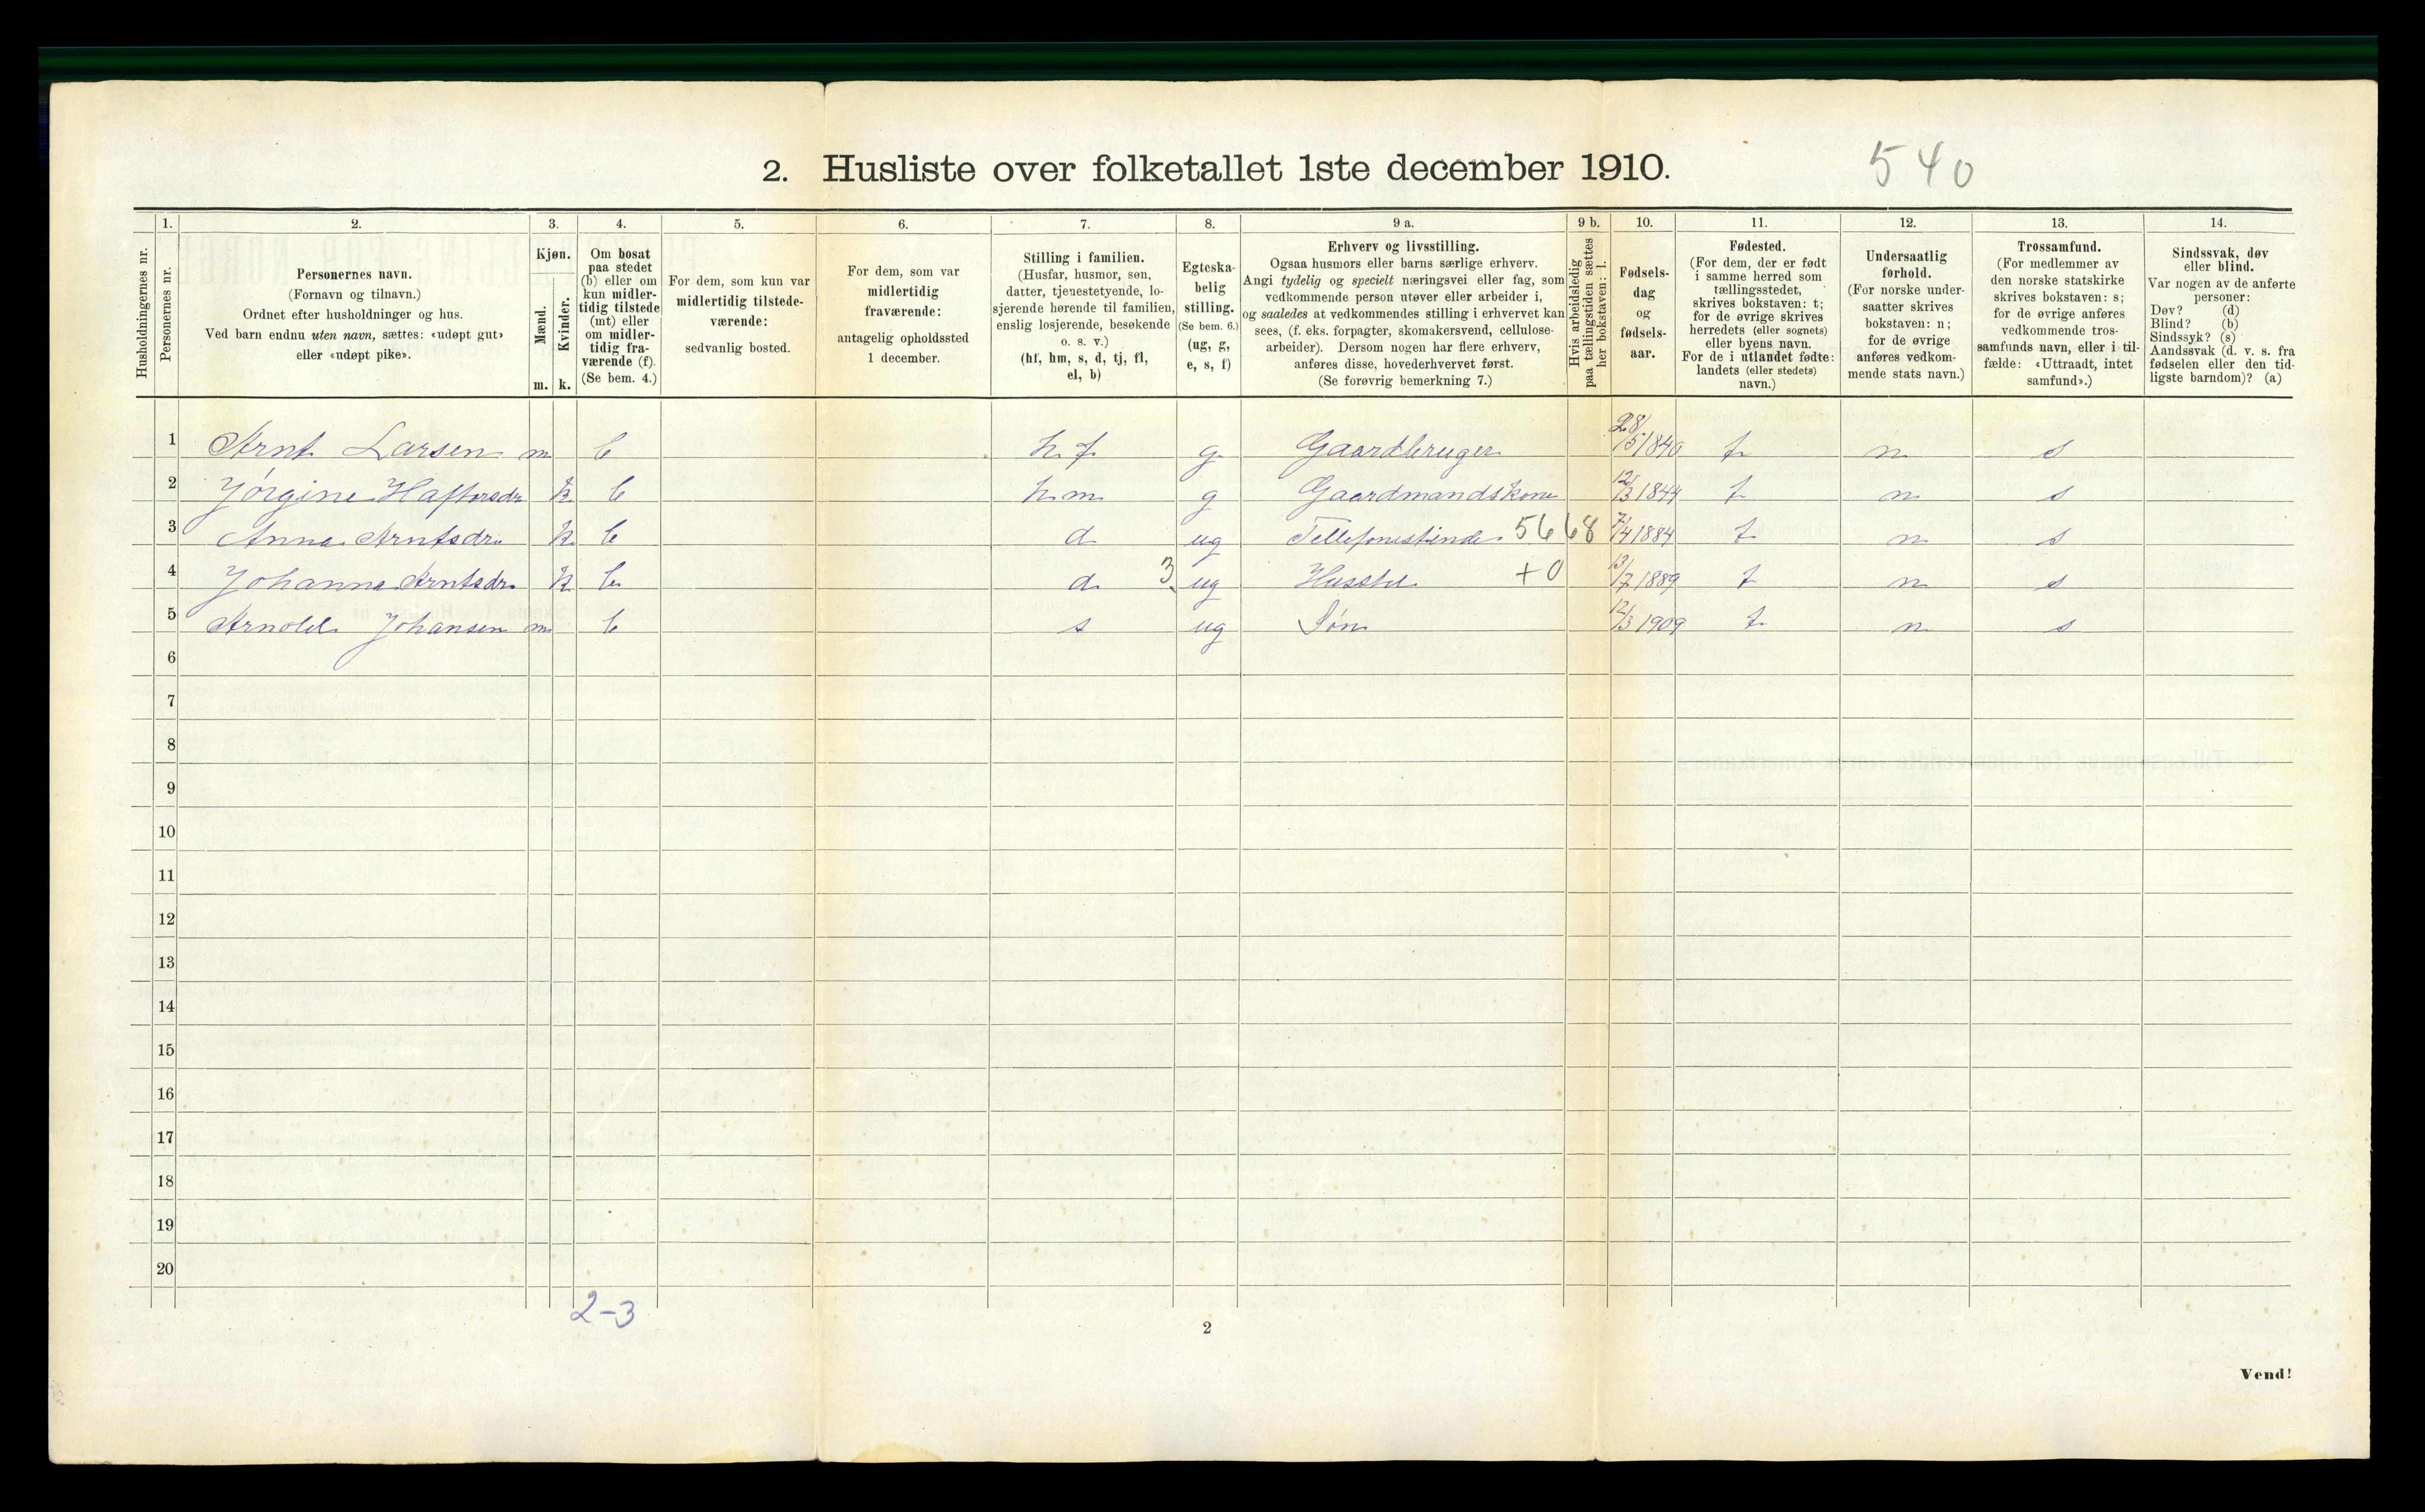 2. Husliste over folketallet 1ste december 1910.
540
Husholdningernes nr.
1.
Personernes nr.
2.
Personernes navn.
(Fornavn og tilnavn.)
Ordnet efter husholdninger og hus.
Ved barn endnu uten navn, sættes: «udøpt gut»
eller «udøpt pike».
3.
Kjøn.
Mænd.
m.
Kvinder.
k.
4.
Om bosat
paa stedet
(b) eller om
kun midler-
tidig tilstede
(mt) eller
om midler-
tidig fra-
værende (f).
(Se bem. 4.)
5.
For dem, som kun var
midlertidig tilstede-
værende:
sedvanlig bosted.
6.
For dem, som var
midlertidig
fraværende:
antagelig opholdssted
1 december.
7.
Stilling i familien.
(Husfar, husmor, søn,
datter, tjenestetyende, lo-
sjerende hørende til familien,
enslig losjerende, besøkende
o. s. v.)
(hf, hm, s, d, tj, fl,
el, b)
8.
Egteska-
belig
stilling.
(Se bem. 6.)
(ug, g,
e, s, f)
9 a.
Erhverv og livsstilling.
Ogsaa husmors eller barns særlige erhverv.
Angi tydelig og specielt næringsvei eller fag, som
vedkommende person utøver eller arbeider i,
og saaledes at vedkommendes stilling i erhvervet kan
sees, (f. eks. forpagter, skomakersvend, cellulose-
arbeider). Dersom nogen har flere erhverv,
anføres disse, hovederhvervet først.
(Se forøvrig bemerkning 7.)
9 b.
Hvis arbeidsledig
paa tællingstiden sættes
her bokstaven: l.
10.
Fødsels-
dag
og
fødsels-
aar.
11.
Fødested.
(For dem, der er født
i samme herred som
tællingsstedet,
skrives bokstaven: t;
for de øvrige skrives
herredets (eller sognets)
eller byens navn.
For de i utlandet fødte:
landets (eller stedets)
navn.)
12.
Undersaatlig
forhold.
(For norske under-
saatter skrives
bokstaven: n;
for de øvrige
anføres vedkom-
mende stats navn.)
13.
Trossamfund.
(For medlemmer av
den norske statskirke
skrives bokstaven: s;
for de øvrige anføres
vedkommende tros-
samfunds navn, eller i til-
fælde: «Uttraadt, intet
samfund».)
14.
Sindssvak, døv
eller blind.
Var nogen av de anførte
personer:
Døv? (d)
Blind? (b)
Sindssyk? (s)
Aandssvak (d. v. s. fra
fødselen eller den tid-
ligste barndom)? (a)
1 Arnt Larsen m b hf g Gaardbruger 28/5 1840 t n s
2 Jörgine Haftorsdr k b hm g Gaardmandskone 12/3 1844 t n s
3 Anna Arntsdr. k b d ug Tellefonistinde 5668 7/4 1884 t n s
4 Johanna Arntsdr. k b d 3 ug Husstel +0 13/7 1889 t n s
5 Arnold Johansen m b s ug Søn 12/3 1909 t n s
6
7
8
9
10
11
12
13
14
15
16
17
18
19
20
2-3
2
Vend!